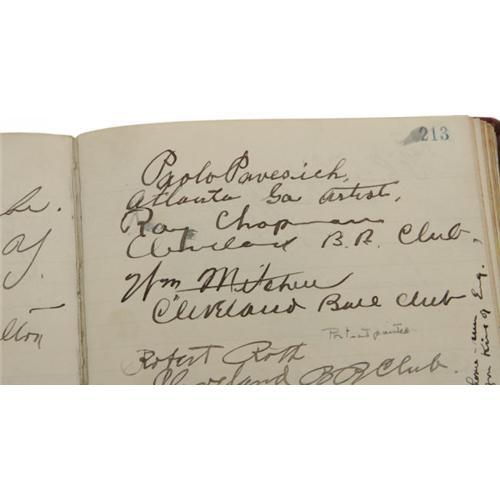 213
Paolo Pavesich,
Atlanta Ga Artist,
Ray Chapman
Cleveland B.B. Club,
Wm Mitchell
Cleveland Ball Club
Portrait painter
Robert Roth
Cleveland B B Club.
lton
King of Eng.